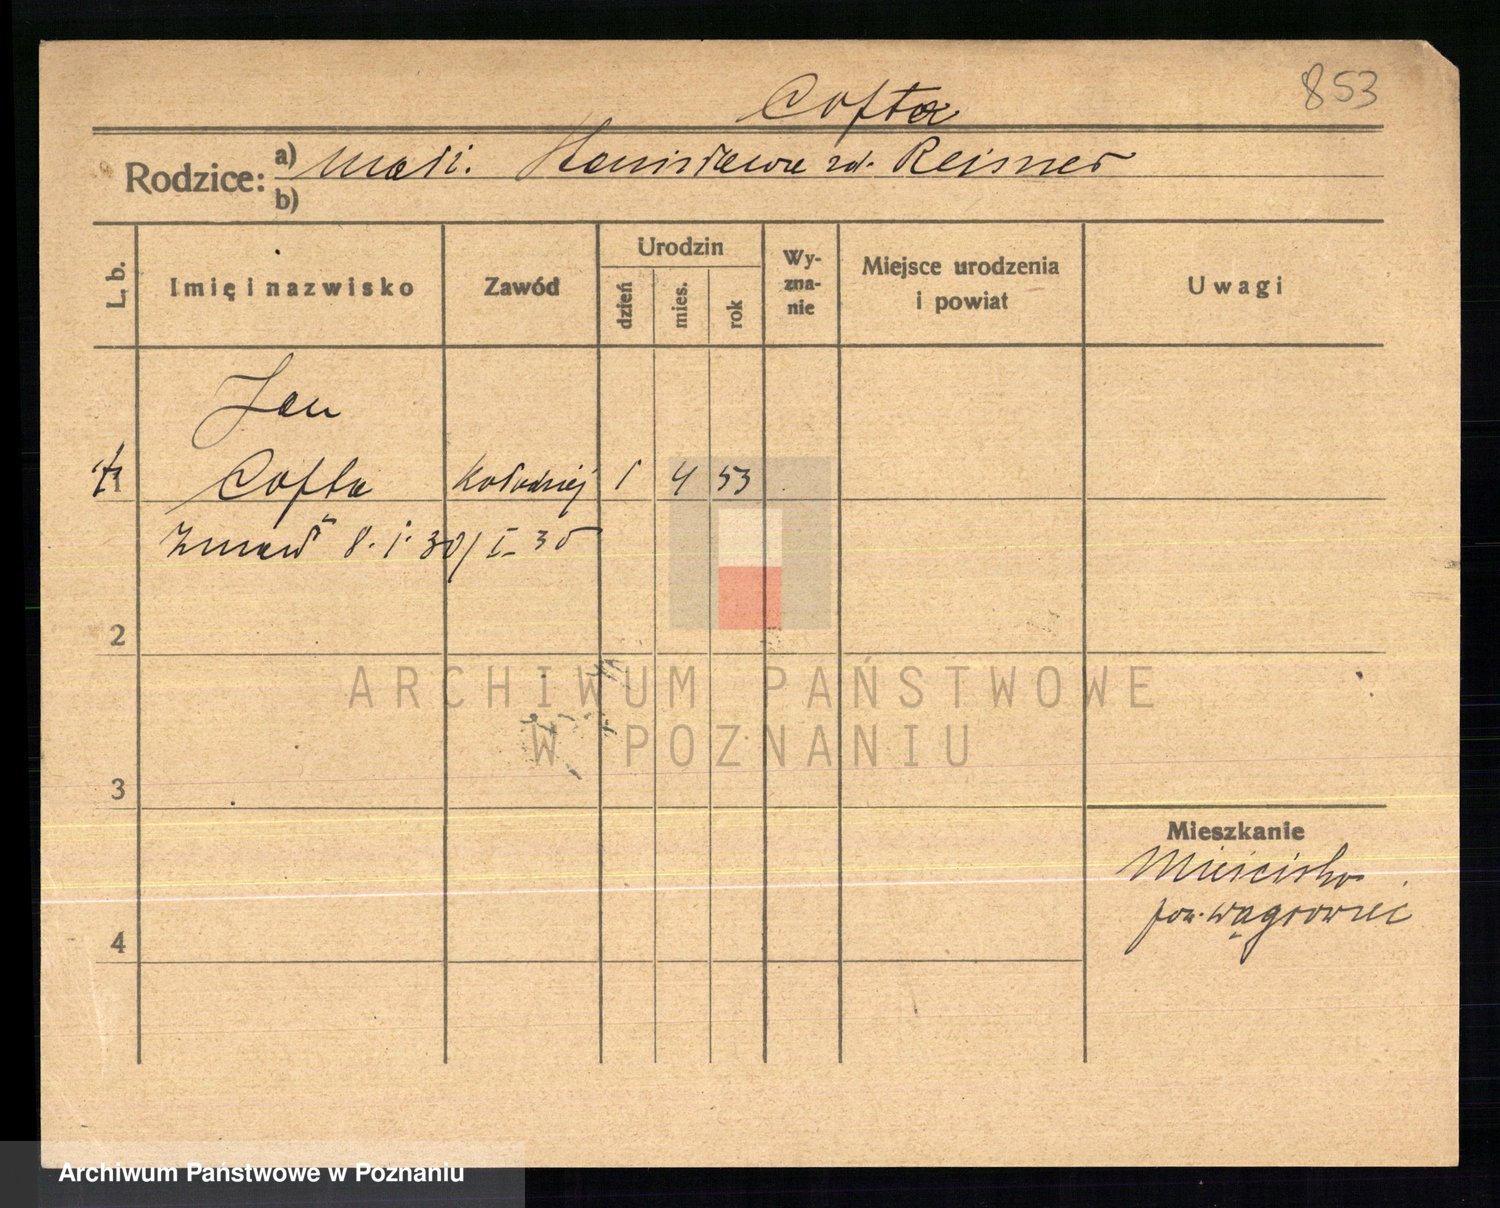 853
Cofta
Rodzice: a) małż. Stanisława zd. Reisner
b)
L. b. Imię i nazwisko Zawód Urodzin dzień mies. rok Wy-zna-nie Miejsce urodzenia i powiat Uwagi
Jan
1 Cofta Kołodziej 1 4 53
Zmarł 8. 1. 30/I 30
2
ARCHIWUM PAŃSTWOWE
W POZNANIU
3
Mieszkanie
Mieścisko
pow. Wągrowiec
4
Archiwum Państwowe w Poznaniu